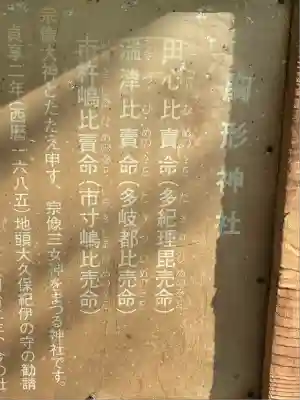 駒形神社
田心比賣命(多紀理毘売命)
湍津比賣命(多岐都比売命)
市杵嶋比賣命(市寸嶋比売命)
宗像大神とたたえ申す、宗像三女神をまつる神社です。
貞享二年(西暦一六八五)地頭大久保紀伊の守の勧請